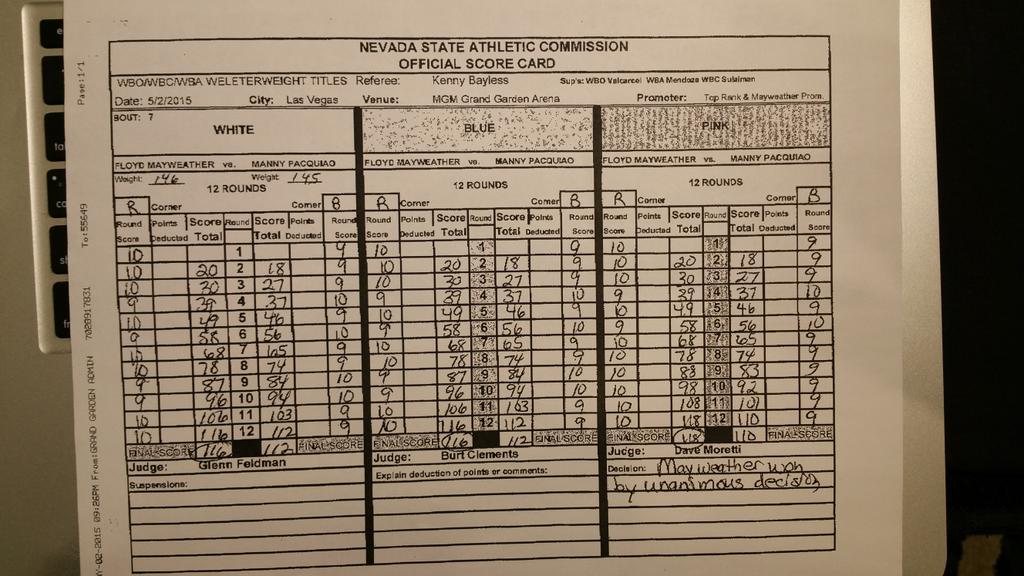 NEVADA STATE ATHLETIC COMMISSION
OFFICIAL SCORE CARD
WBO/WBC/WBA WELETERWEIGHT TITLES Referee: Kenny Bayless Sup's: WBO Valcarcel WBA Mendoza WBC Sulaiman
Date: 5/2/2015 City: Las Vegas Venue: MGM Grand Garden Arena Promoter: Top Rank & Mayweather Prom.
BOUT: 7
WHITE BLUE PINK
FLOYD MAYWEATHER vs. MANNY PACQUIAO FLOYD MAYWEATHER vs. MANNY PACQUIAO FLOYD MAYWEATHER vs. MANNY PACQUIAO
Weight: 146 Weight: 145
12 ROUNDS 12 ROUNDS 12 ROUNDS
R Corner Corner B R Corner Corner B R Corner Corner B
Round Score Points Deducted Score Total Round Score Total Points Deducted Round Score Round Score Points Deducted Score Total Round Score Total Points Deducted Round Score Round Score Points Deducted Score Total Round Score Total Points Deducted Round Score
10 1 9 10 1 9 10 1 9
10 20 2 18 9 10 20 2 18 9 10 20 2 18 9
10 30 3 27 9 10 30 3 27 9 10 30 3 27 9
9 39 4 37 10 9 39 4 37 10 9 39 4 37 10
10 49 5 46 9 10 49 5 46 9 10 49 5 46 9
9 58 6 56 10 9 58 6 56 10 9 58 6 56 10
10 68 7 65 9 10 68 7 65 9 10 68 7 65 9
10 78 8 74 9 10 78 8 74 9 10 78 8 74 9
9 87 9 84 10 9 87 9 84 10 10 9 9
9 96 10 94 10 9 96 10 94 10 10 98 10 92 9
10 106 11 103 9 10 106 11 103 9 10 108 11 101 9
10 116 12 112 9 10 116 12 112 9 10 118 12 110 9
FINAL SCORE 116 112 FINAL SCORE FINAL SCORE 116 112 FINAL SCORE FINAL SCORE 118 110 FINAL SCORE
Judge: Glenn Feldman Judge: Burt Clements Judge: Dave Moretti
Suspensions: Explain deduction of points or comments: Decision: Mayweather won
by unanimous decision
Page:1/1
To:55649
7028917831
From:GRAND GARDEN ADMIN
Y-02-2015 09:26PM